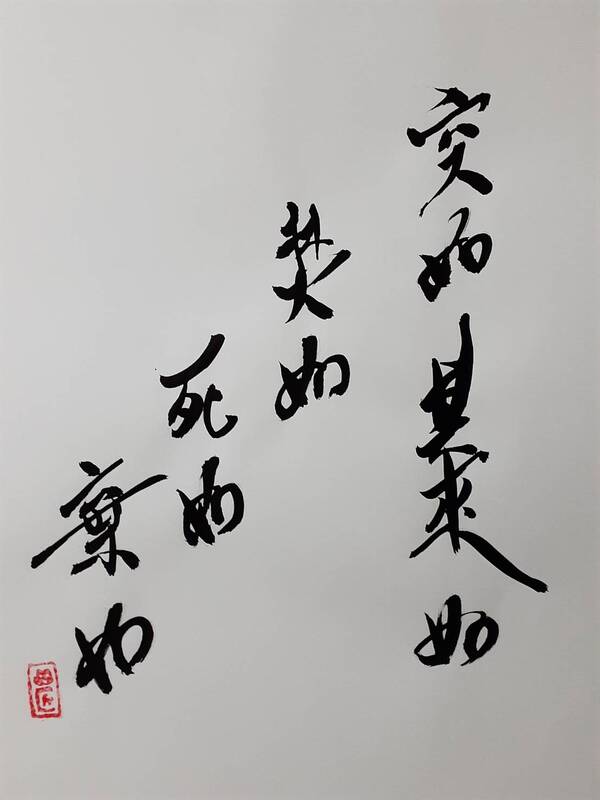 突如其来如
焚如
死如
棄如